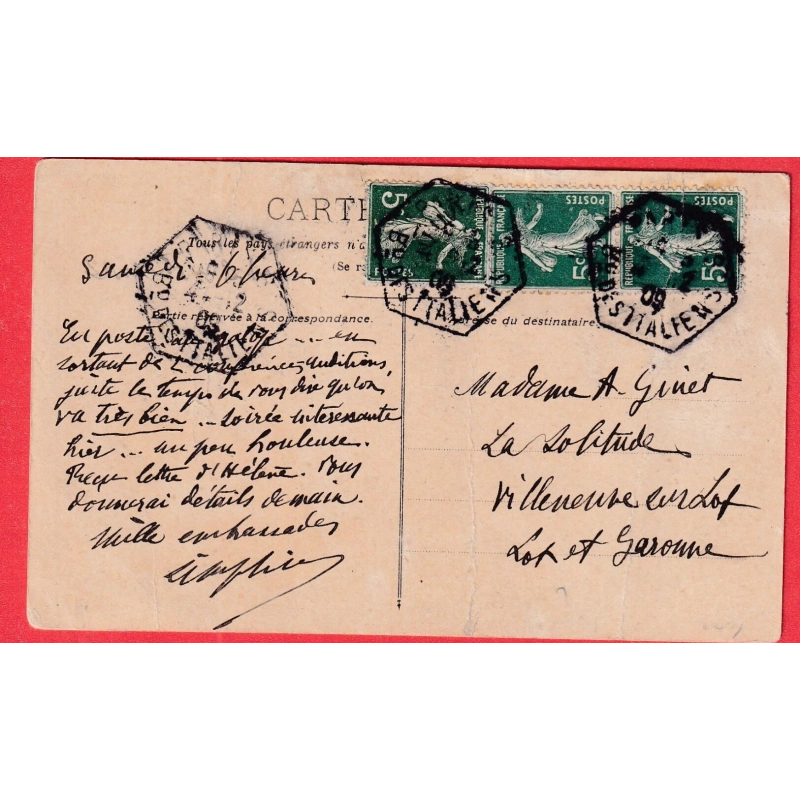 CARTE
Tous les pays étrangers n'a
(Se r
Samedi 6 heures
Partie réservée à la correspondance.
En poste ... en
sortant de 2 auditions,
juste le temps de vous dire qu'on
va très bien .. soirée intéressante
hier ... un peu houleuse.
Reçu lettre d'Hélène. Vous
donnerai détails demain.
Mille embrassades
5c POSTES REPUBLIQUE FRANÇAISE
POSTES 5c REPUBLIQUE FRANÇAISE
POSTES 5c REPUBLIQUE FRANÇAISE
BD DES ITALIENS
09
BD DES ITALIENS
09
BD DES ITALIENS
09
Adresse du destinataire
Madame A. Ginet
La Solitude
Villeneuve sur Lot
Lot et Garonne